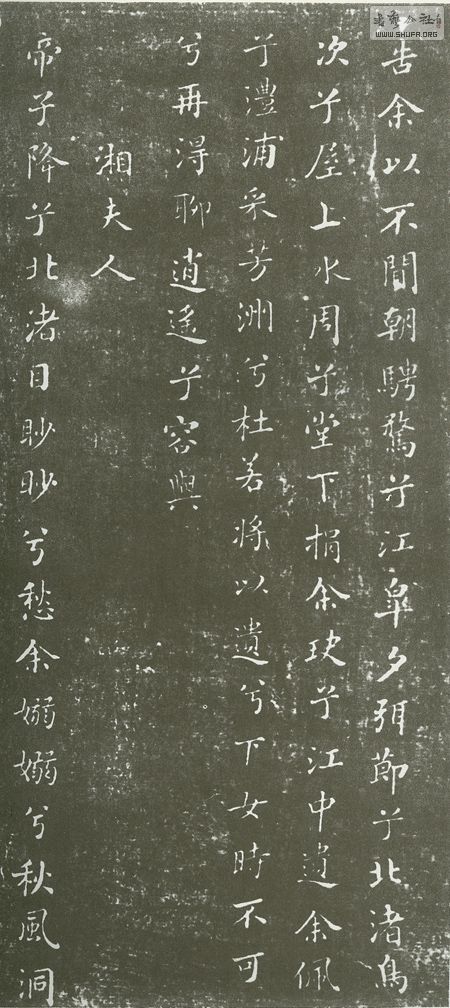 告余以不閒朝騁騖于江皋夕弭節于北渚鳥
次于屋上水周于堂下捐余玦于江中遺余佩
于澧浦采芳洲兮杜若將以遺兮下女時不可
兮再得聊逍遙于容與
湘夫人
帝子降于北渚目眇眇兮愁余嫋嫋兮秋風洞
WWW.SHUFA.ORG